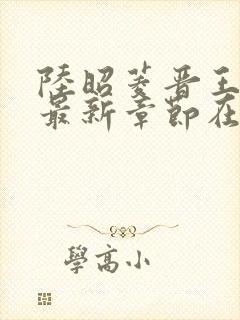 陸昭菱晋王
最新章節在
學高小